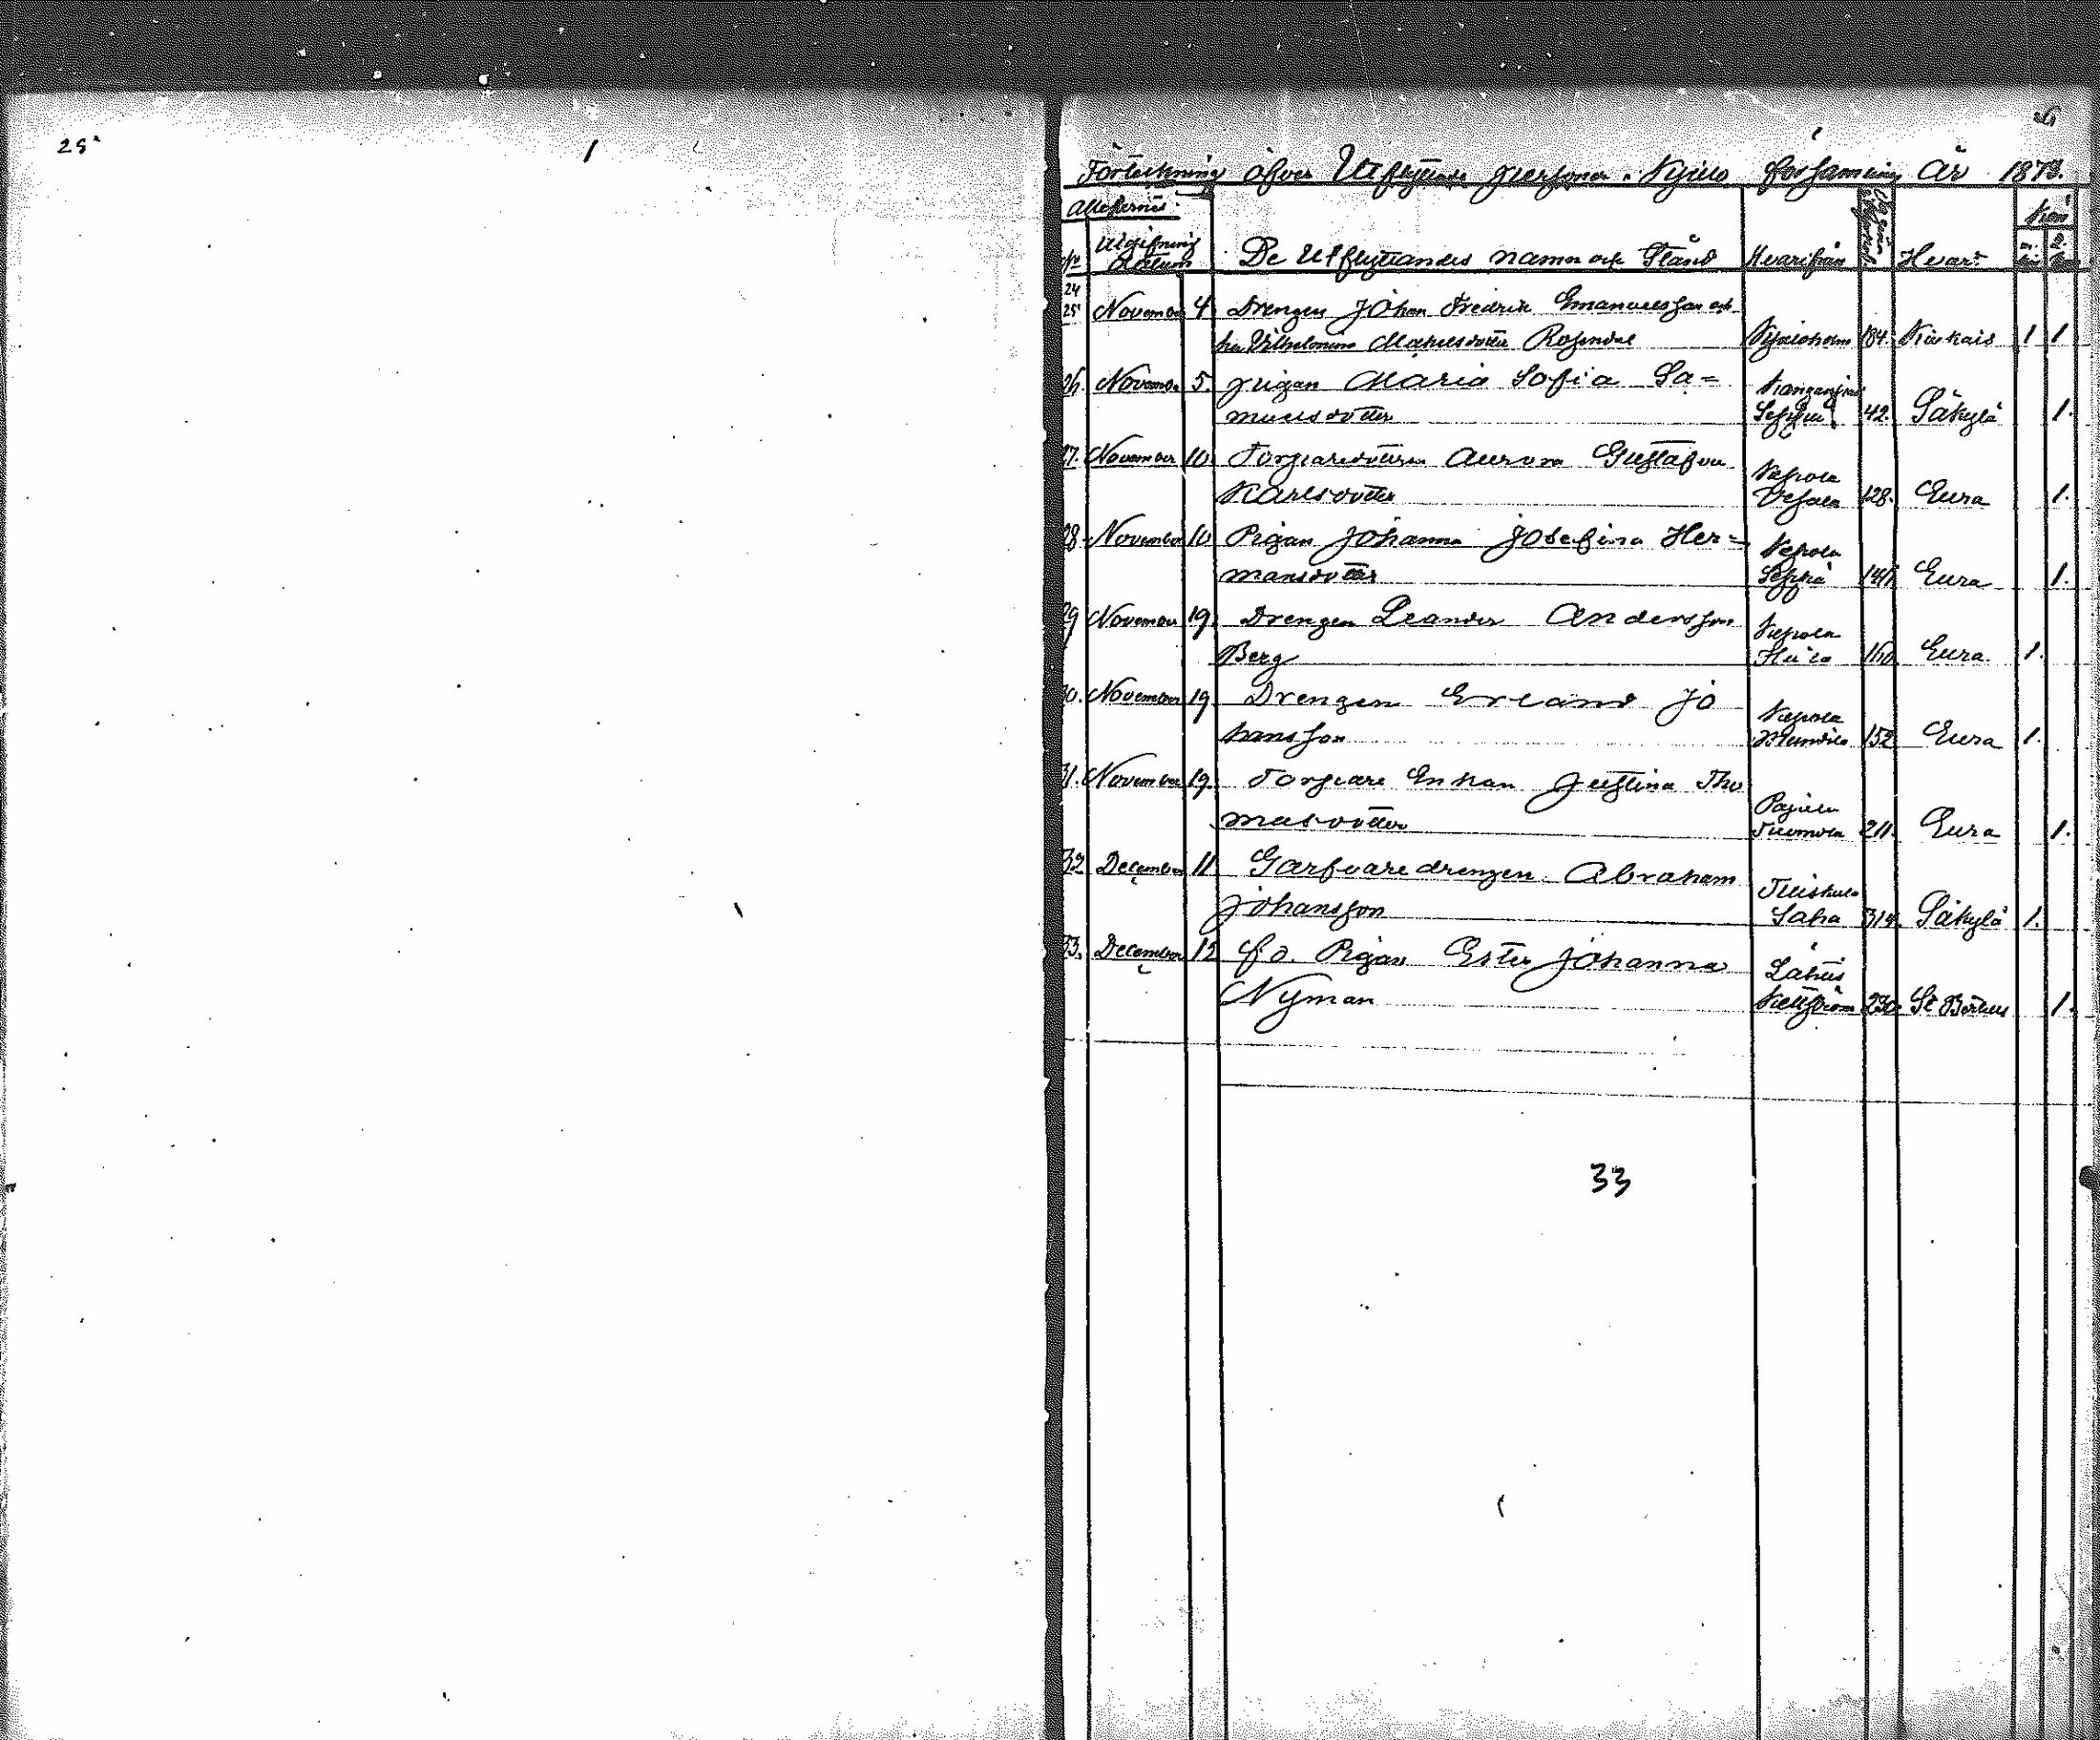 25
26
Förteckning öfver Utflyttade personer i Kjulo församling År 1878.
Attesternes
Kön
No Utgifning Datum De Utflyttandes namn och Stånd Hvarifrån Hvart
24
25 November 4 Drengen Johan Fredrik Emanuelsson och
hu Vilhelmina Mahelsdotter Rosendal Kjuloholm 184. Kiukais 1 1
26. November 5. pigan Maria Sofia Sa=
muelsdotter 42. Säkylä 1.
27. November 10 Torparedottren Aurora Gustafva Kepola
Karlsdotter Vesala 128. Eura 1.
28. November 10 Pigan Johanna Josefina Her= Kepola
mansdotter Seppä 141 Eura 1.
29 November 19. Drengen Leander Andersson Kepola
Berg 160 Eura. 1.
30. November 19. Drengen Erland Jo Kepola
hansson 152 Eura 1.
31. November 19. Torpare Enkan Justina Tho
masdotter Tuomola 211. Eura 1.
32 December 11 Garfvaredrengen Abraham Tuiskula
Johansson Saha 314. Säkylä 1.
33. December 12 f.d. Pigan Ester Johanna
Nyman 230. 1.
33